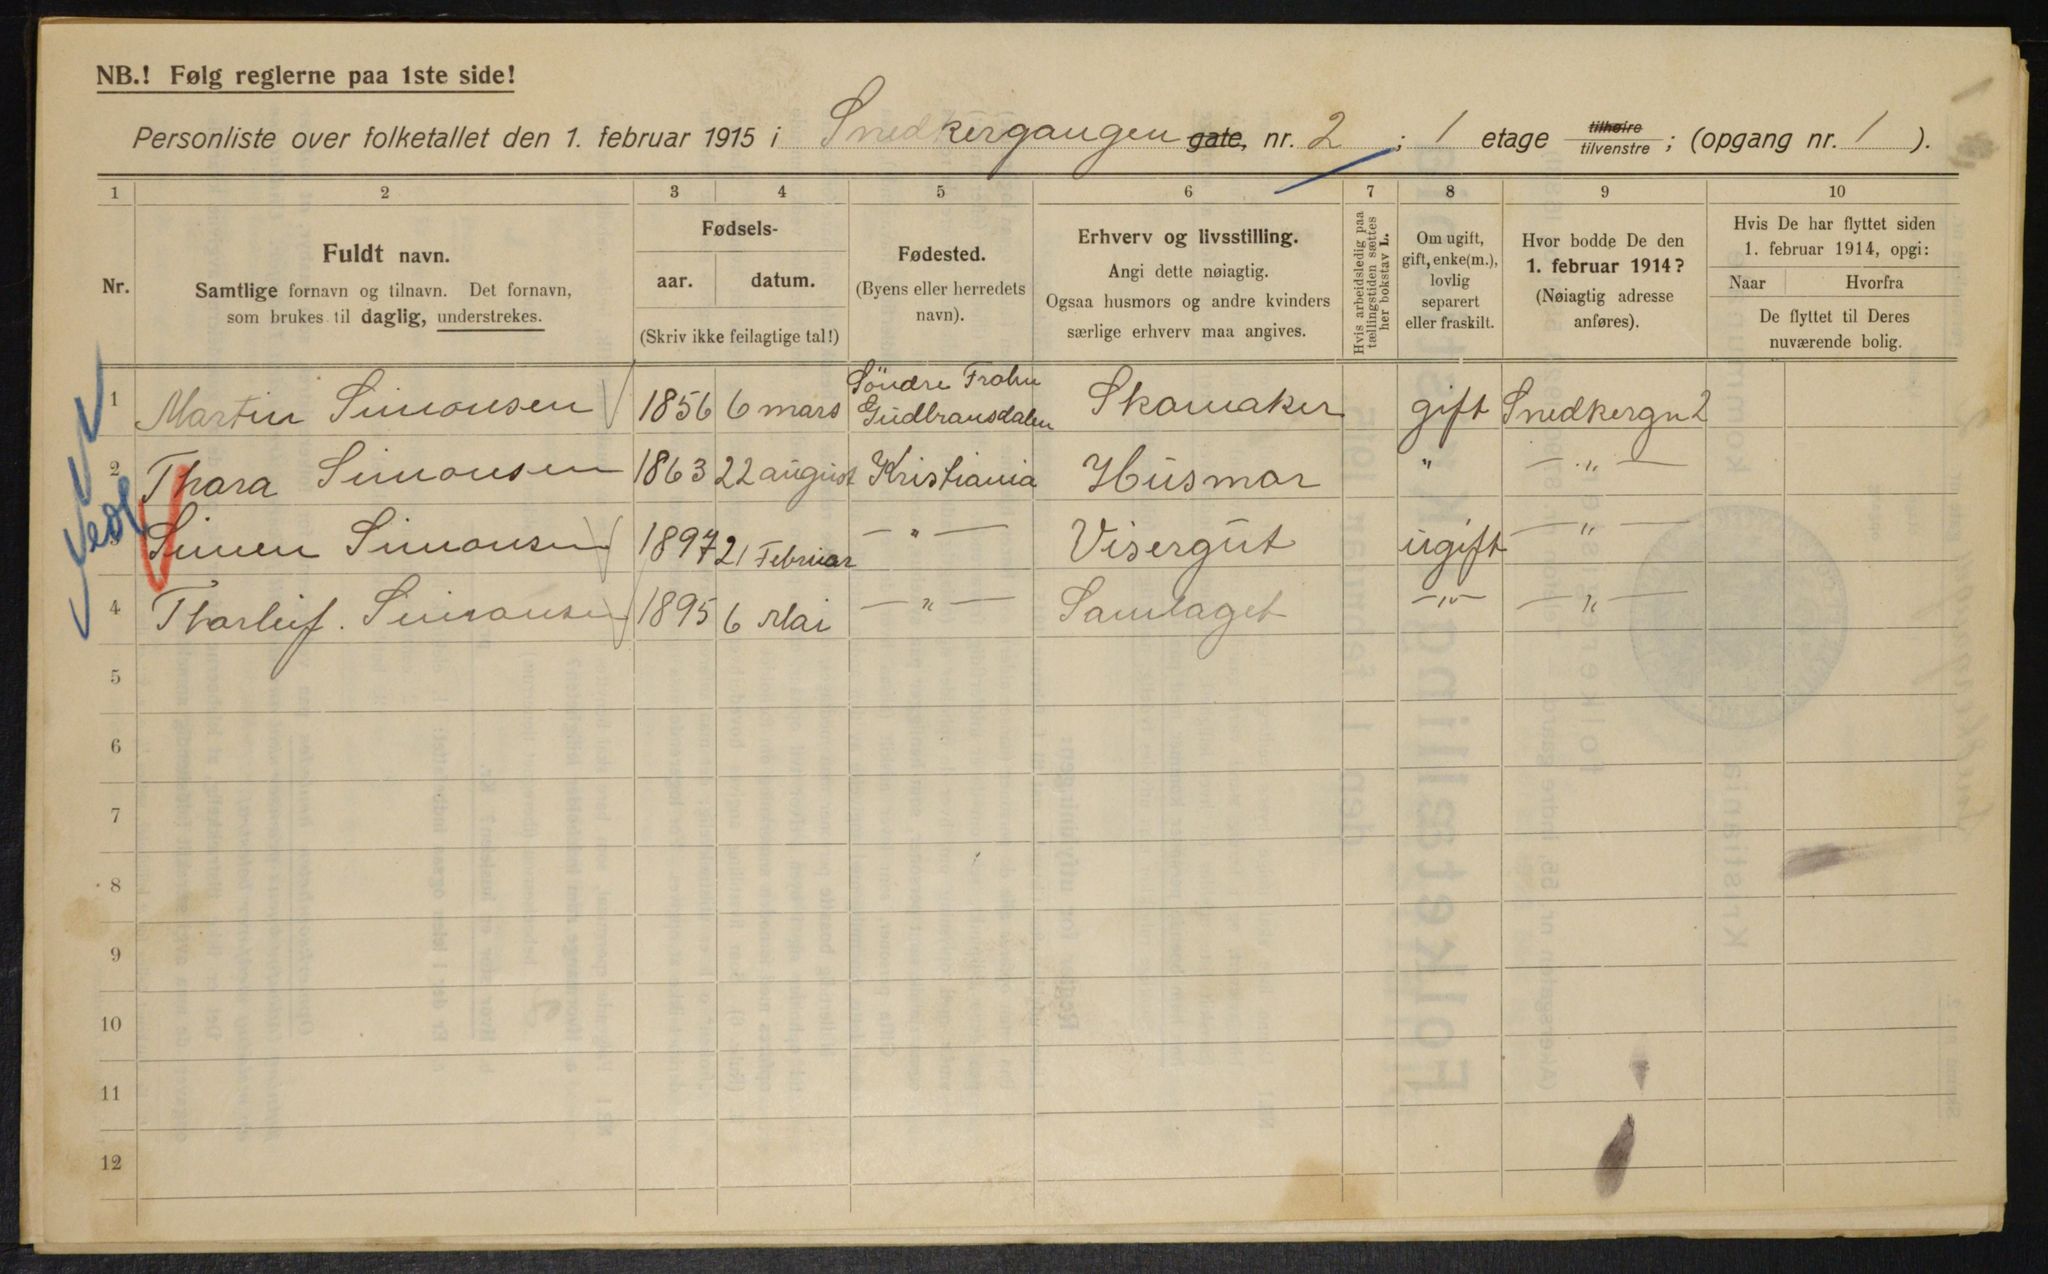 NB.! Følg reglerne paa 1ste side!
Personliste over folketallet den 1. februar 1915 i Snedkergangen gate, nr. 2 ; 1 etage tilhøire tilvenstre ; (opgang nr. 1 ).
1 2 3 4 5 6 7 8 9 10
Nr.
Fuldt navn.
Samtlige fornavn og tilnavn. Det fornavn,
som brukes til daglig, understrekes.
Fødsels-
aar. datum.
(Skriv ikke feilagtige tal!)
Fødested.
(Byens eller herredets
navn).
Erhverv og livsstilling.
Angi dette nøiagtig.
Ogsaa husmors og andre kvinders
særlige erhverv maa angives.
Hvis arbeidsledig paa
tællingstiden sættes
her bokstav L.
Om ugift,
gift, enke(m.),
lovlig
separert
eller fraskilt.
Hvor bodde De den
1. februar 1914?
(Nøiagtig adresse
anføres).
Hvis De har flyttet siden
1. februar 1914, opgi:
Naar Hvorfra
De flyttet til Deres
nuværende bolig.
1 Martin Simonsen 1856 6 mars Söndre Frohn Gudbransdalen Skomaker gift Snedkergn 2
2 Thora Simonsen 1863 22 august Kristiania Husmor " — " —
3 Simen Simonsen 1897 21 Februar — " — Visergut ugift — " —
4 Thorleif. Simonsen 1895 6 Mai — " — Samlaget — " — — " —
5
6
7
8
9
10
11
12